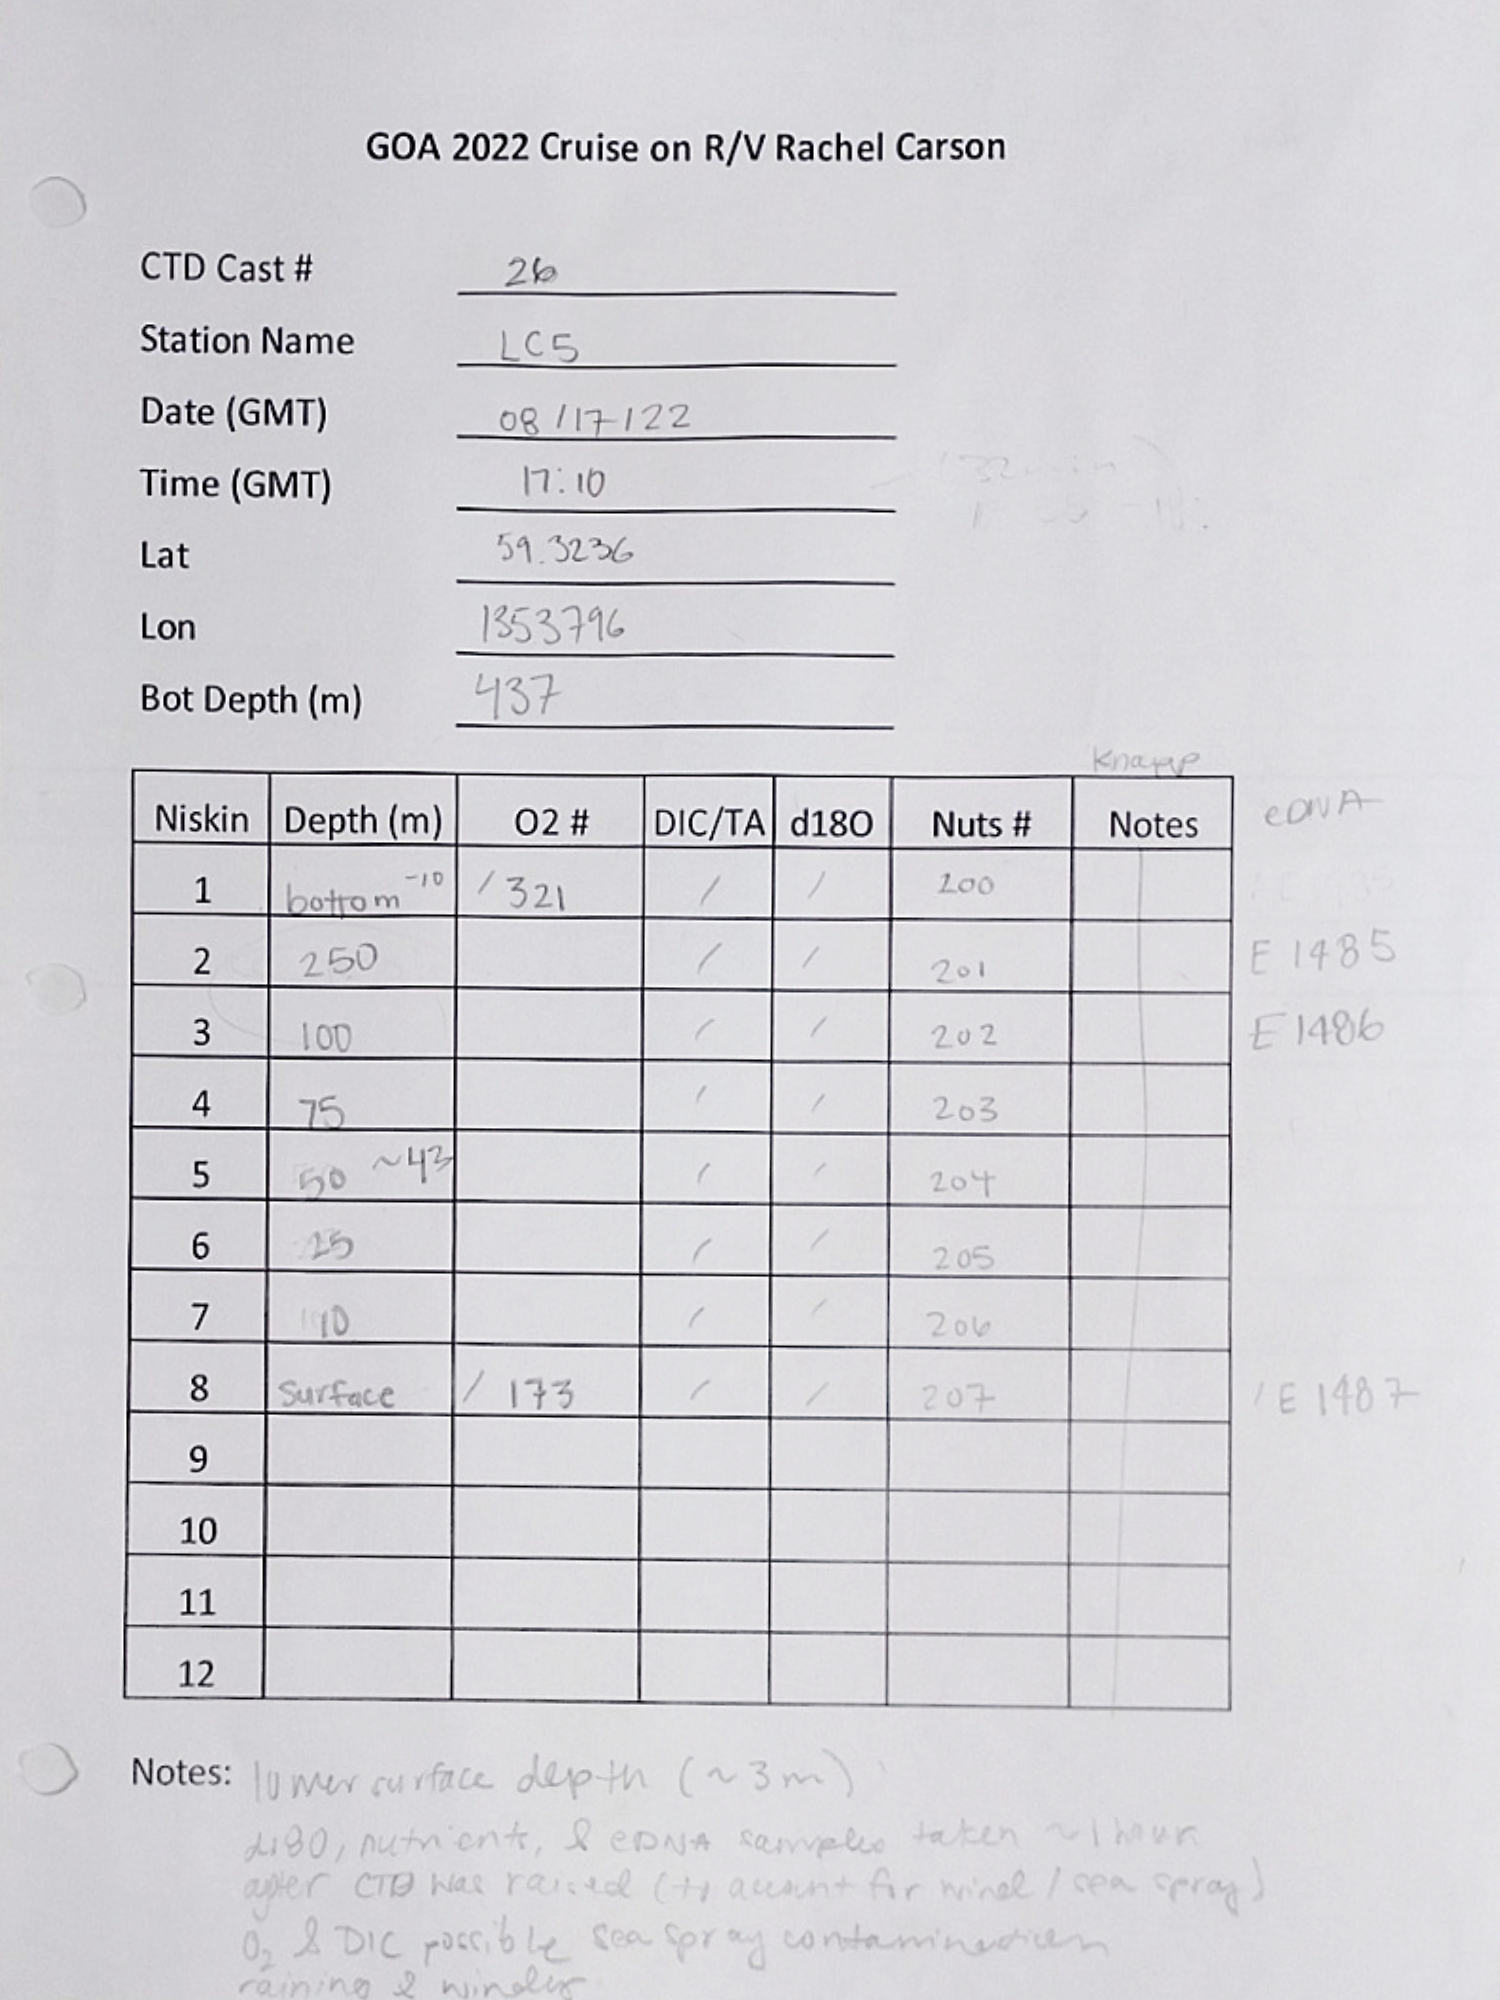 GOA 2022 Cruise on R/V Rachel Carson
CTD Cast # 26
Station Name LC5
Date (GMT) 08/17/22
Time (GMT) 17:10 (32 min)
Lat 59.3236
Lon 1353796
Bot Depth (m) 437
Knapp
Niskin Depth (m) O2 # DIC/TA d18O Nuts # Notes eDNA
1 bottom -10 / 321 / / 200
2 250 / / 201 E 1485
3 100 / / 202 E 1486
4 75 / / 203
5 50 ~43 / / 204
6 25 / / 205
7 10 / / 206
8 Surface / 173 / / 207 / E 1487
9
10
11
12
Notes: lower surface depth (~3m)
d18O, nutrients, & eDNA samples taken ~1 hour
after CTD was raised (to account for wind / sea spray)
O2 & DIC possible sea spray contamination
raining & windy